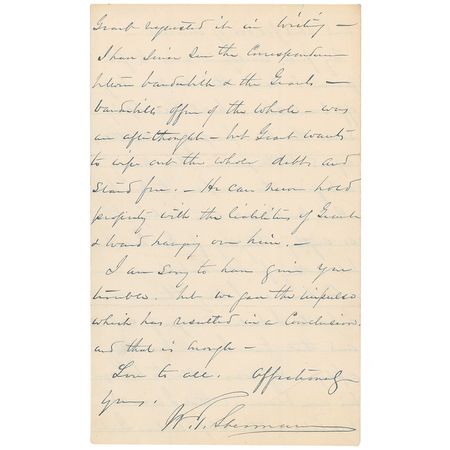 Grant requested it in writing —
I have since seen the Correspondence
between Vanderbilt & the Grants —
Vanderbilts offer of the whole — was
an afterthought — but Grant wants
to wipe out the whole debt and
stand free. — He can never hold
property with the liabilities of Grant
& Ward hanging over him. —
I am sorry to have given you
trouble. but we gave the impulse
which has resulted in a Conclusion.
and that is enough —
Love to all. Affectionately
yours.
W. T. Sherman